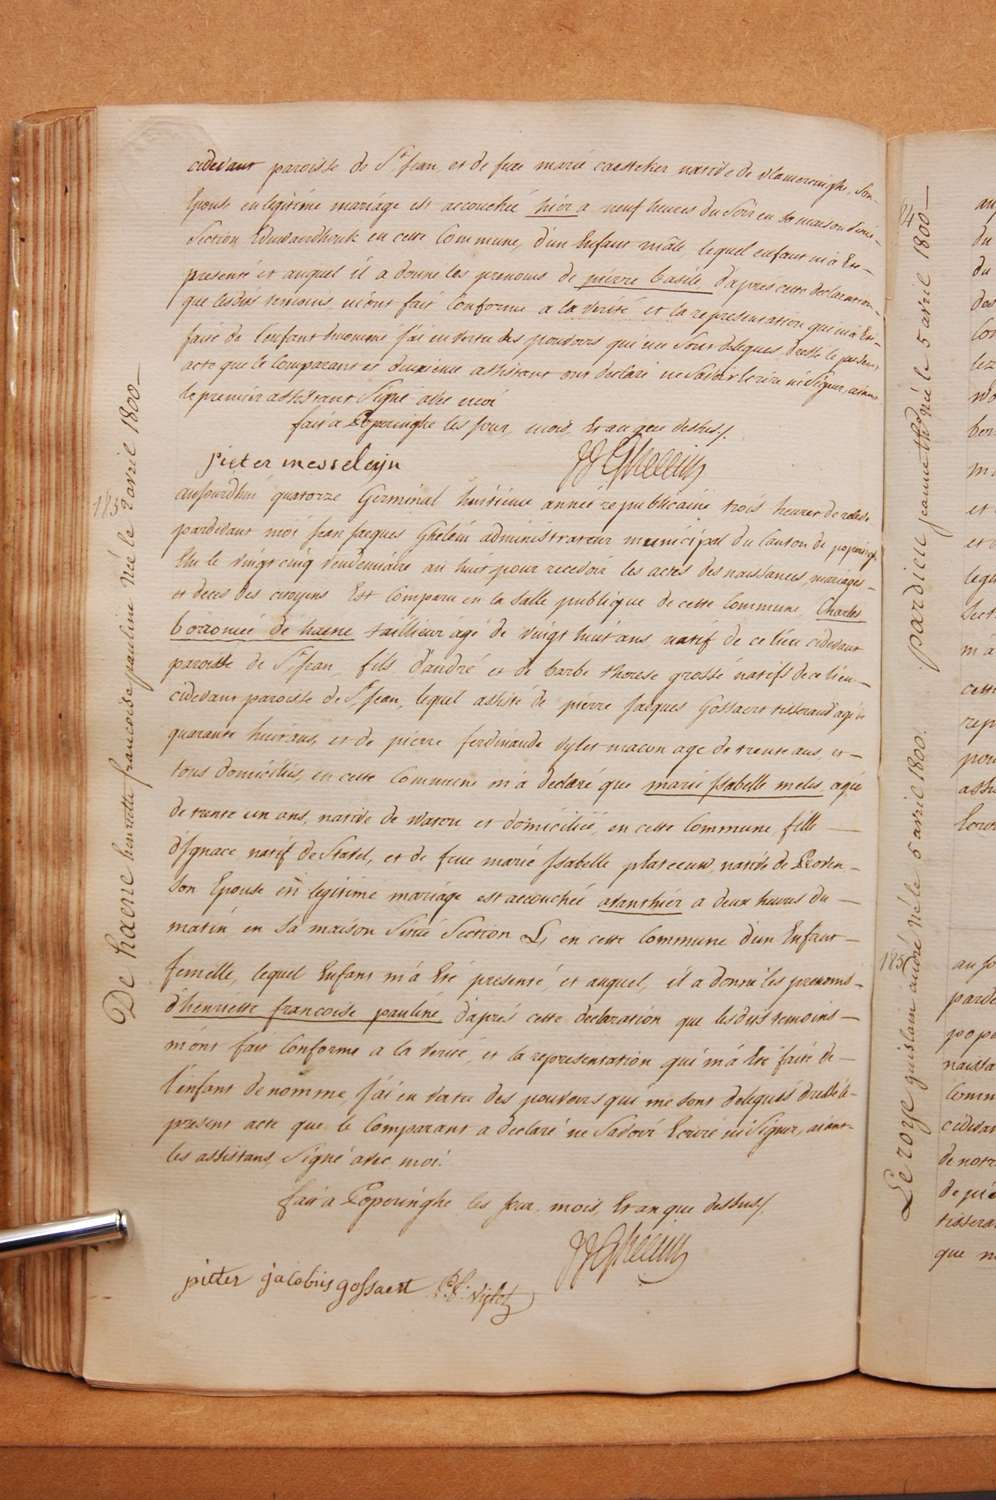 cidevant paroisse de St Jean, et de feue marié casteker native de vlamertinghe, son
Epouse en legitime mariage est accouchée hier a neuf heures du Soir en sa maison
Section Eduwaerdhouk en cette Commune, d'un Enfant mâle, lequel enfant m'a Eté
presenté et auquel il a donné les prenoms de pierre basile d'apres cette declaration
que lesdits temoins m'ont fait Conforme a la verité et la representation qui m'a Eté
faite de l'enfant denommé j'ai en vertu des pouvoirs qui me Sont delegués dressé le present
acte que le Comparant et deuxieme assistant ont declaré ne Savoir Ecrire ni Signer, aiant
le premier assistant Signé avec moi
fait à Poperinghe les jour, mois, Et an que dessus /.
pieter messeleijn JJGhelein
185
aujourdhui quatorze Germinal huitieme année republicaine trois heures de relevée
pardevant moi Jean Jacques Ghelein administrateur municipal du Canton de poperinghe
Elu le vingt cinq vendemiaire an huit pour recevoir les actes des naissances, mariages
et deces des citoyens Est Comparu en la Salle publique de cette Commune, Charles
borromeé de haene taillieur agé de vingt huit ans, natif de ce lieu cidevant
paroisse de St Jean, fils d'andré et de barbe therese grossé natifs de ce lieu
cidevant paroisse de St Jean, lequel assisté de pierre Jacques Gossaert tisserand agé de
quarante huit ans, et de pierre ferdinande vylet macon age de trente ans, et
tous domiciliés, en cette Commune m'a declaré que marie Isabelle meles agée
de trente un ans, native de watou et domiciliée, en cette Commune, fille
d'Ignace natif de Stavel, et de feue marié Isabelle plateeuw, native de
Son Epouse en legitime mariage est accouchée avanthier a deux heures du
matin en Sa maison Sitûe Section L, en cette Commune d'un Enfant
femelle, lequel Enfant m'a Eté presenté, et auquel, il a donné les prenoms
d'henriette francoise pauliné d'aprés cette declaration que lesdits temoins
m'ont fait Conforme a la verité, et la representation qui m'a Eté faite de
l'enfant denommé, j'ai en vertu des pouvoirs qui me Sont delegués dressé le
present acte que le Comparant a declaré ne Savoir Ecrire ni Signer, aiant
les assistans Signé avec moi.
fait à Poperinghe les jour, mois, Et an que dessus /.
JJGhelein
pieter jacobus gossaert P:f: vylet
De haene henriette francoise pauline née le 2 avril 1800
pardieu jeanne née le 5 avril 1800
Le roye guislain andré né le 5 avril 1800.